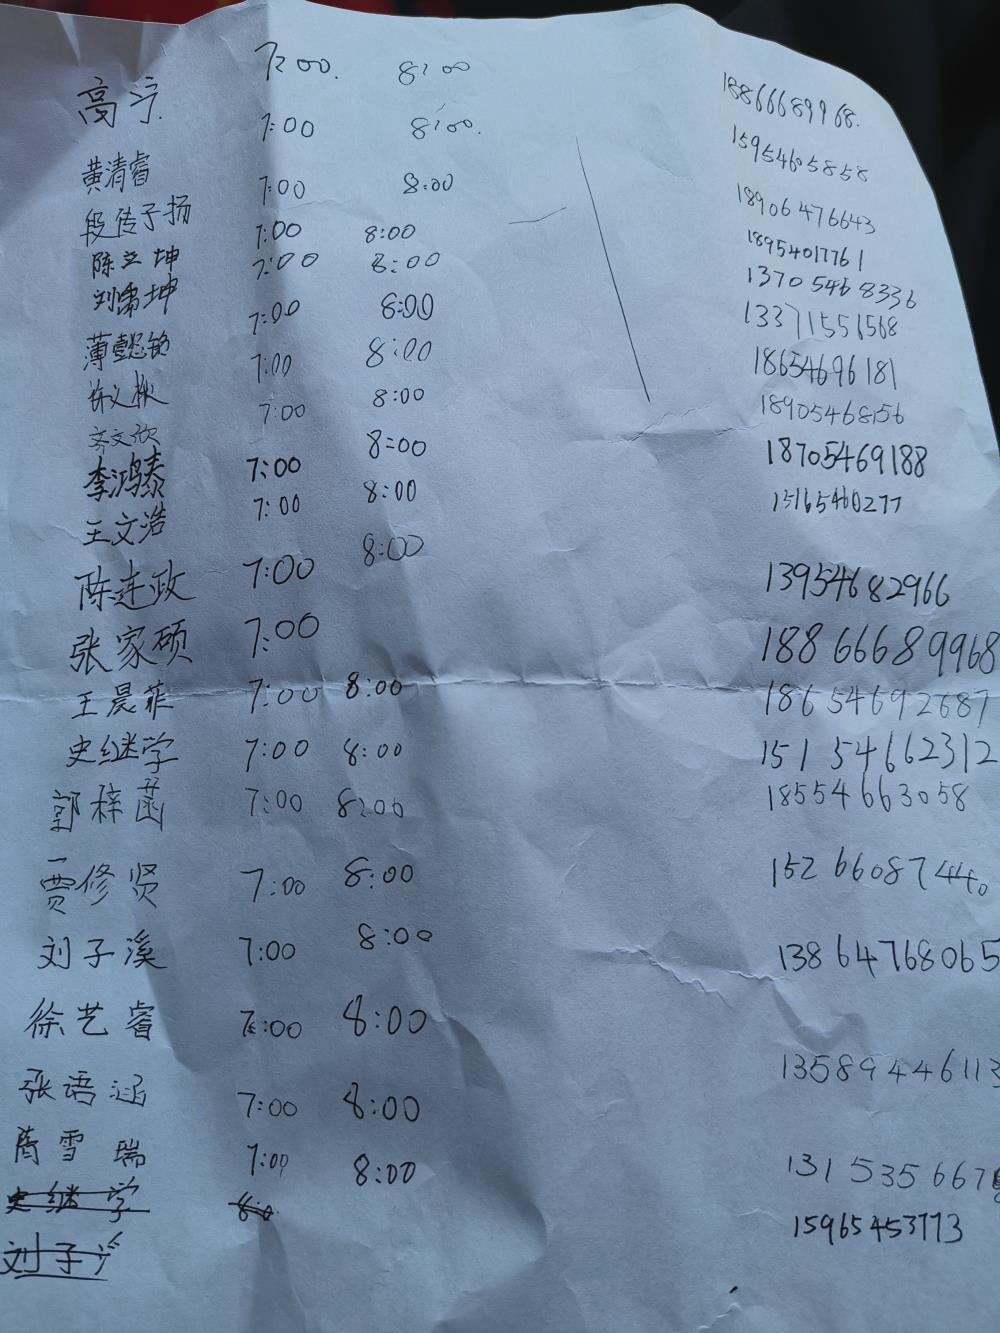 高宁 7:00. 8:00 18866689968.
黄清睿 7:00 8:00. 15954605858
段传子扬 7:00 8:00 18906476643
陈立坤 7:00 8:00 18954017761
刘雷坤 7:00 8:00 13705468336
薄懿铭 7:00 8:00 13371556568
徐义椒 7:00 8:00 18654696181
齐文欣 7:00 8:00 18905468156
李鸿泰 7:00 8:00 18705469188
王文浩 7:00 8:00 15165460277
陈连政 7:00 8:00 13954682966
张家硕 7:00 18866689968
王晨菲 7:00 8:00 18654692687
史继学 7:00 8:00 15154662312
郭梓菡 7:00 8:00 18554663058
贾修贤 7:00 8:00 15266087440
刘子溪 7:00 8:00 13864768065
徐艺睿 7:00 8:00
张语涵 7:00 8:00 13589446113
雪瑞 7:00 8:00 1315356678
史继学 8:0 15965453773
刘子